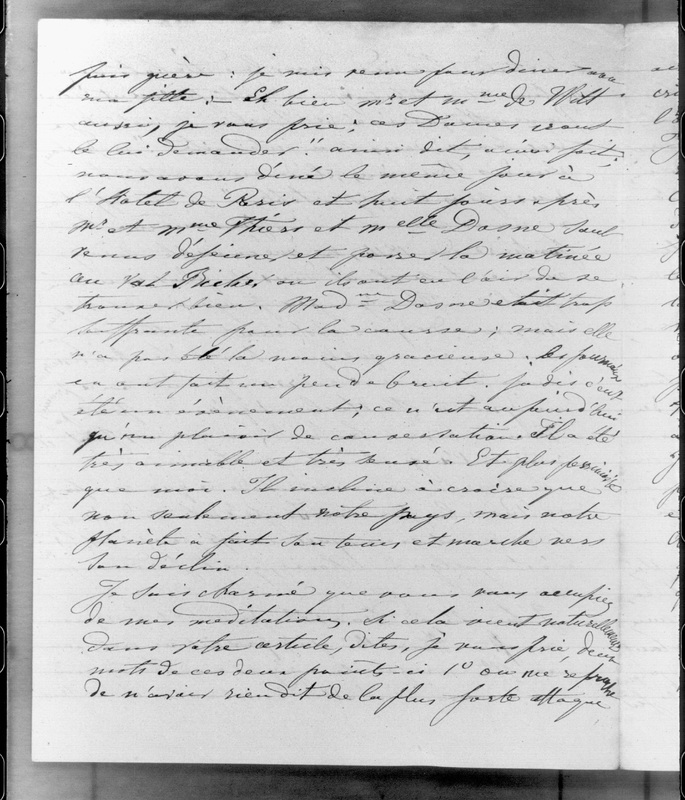 puis guère : je suis venu pour diner avec
ma fille : Eh bien Mr et Mme de Witt
aussi, je vous prie ; ces Dames iront
le lui demander." ainsi dit, ainsi fait.
nous avons diné le même jour à
l'Hotel de Paris et huit jours après
Mr et Mme Thiers et Melle Dosne sont
venus déjeuner et passer la matinée
au Val Richer où ils ont eu l'air de se
trouver bien. Made Dosne etait trop
souffrante pour la course ; mais elle
n'a pas été la moins gracieuse. Les journaux
en ont fait un peu de bruit. Jadis c'eut
été un évènement ; ce n'est aujourd'hui
qu'un plaisir de conversation. Il a été
très aimable et très sensé. Et plus pessimiste
que moi. Il incline à croire que
non seulement notre pays, mais notre
planète a fait son tems et marche vers
son déclin.
Je suis charmé que vous vous occupiez
de mes méditations. Si cela vient naturellement
dans votre article, dites, je vous prie, deux
mots de ces deux points-ci 1º on me reproche
de n'avoir rien dit de la plus forte attaque